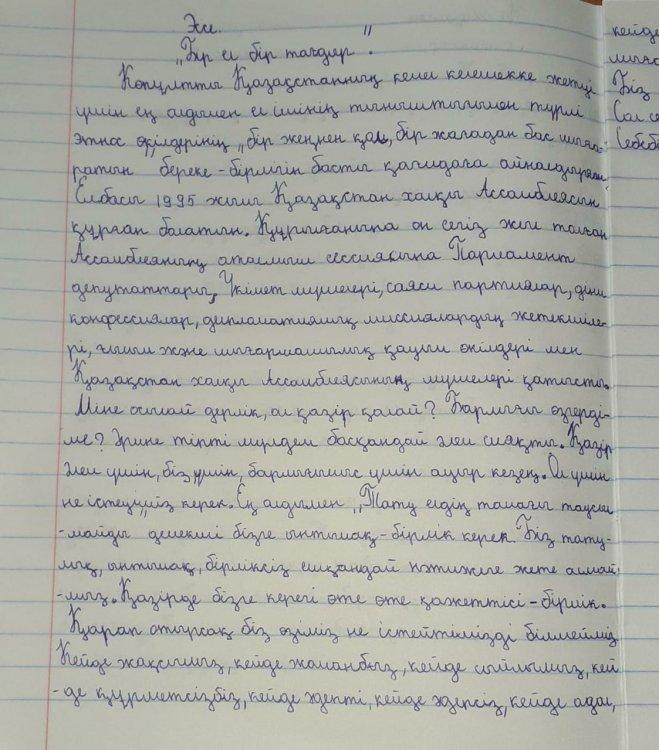 Эсс.
„Бір ел бір тағдыр".
Көпұлтты Қазақстанның кемел келешекке жетуі
үшін ең алдымен ел ішінің тыныштығымен түрлі
этнос өкілдерінің „бір жеңнен қол, бір жағадан бас шыға-
ратын береке-бірлігін басты қағидаға айналдырған
Елбасы 1995 жылы Қазақстан халқы Ассамблеясын
құрған болатын. Құрылғанына он сегіз жыл толған
Ассамблеяның аталмыш сессиясына Парламент
депутаттары, Үкімет мүшелері, саяси партиялар, діни
конфессиялар, дипломатиялық миссиялардың жетекшіле-
рі, ғылым және шығармашылық қауым өкілдері мен
Қазақстан халқы Ассамблеясының мүшелері қатысты.
Міне осылай дерлік, ал қазір қалай? Барлығы өзгерді-
ме? Әрине тіпті мүлдем басқандай әлем сияқты. Қазір
әлем үшін, біз үшін, барлығымыз үшін ауыр кезең. Ол үшін
не істеуіміз керек. Ең алдымен „Тату елдің тамағы таусыл
-майды демекші бізге ынтымақ-бірлік керек. Біз тату-
лық, ынтымақ, бірліксіз ешқандай нәтижеге жете алмай
-мыз. Қазірде бізге керегі өте өте қажеттісі - бірлік.
Қарап отырсақ біз өзіміз не істейтімізді білмейміз
Кейде жақсымыз, кейде жаманбыз, кейде сыйлымыз, кей
-де құрметсізбіз, кейде әдепті, кейде әдепсіз, кейде адал,
кейде
Біз
Себебі